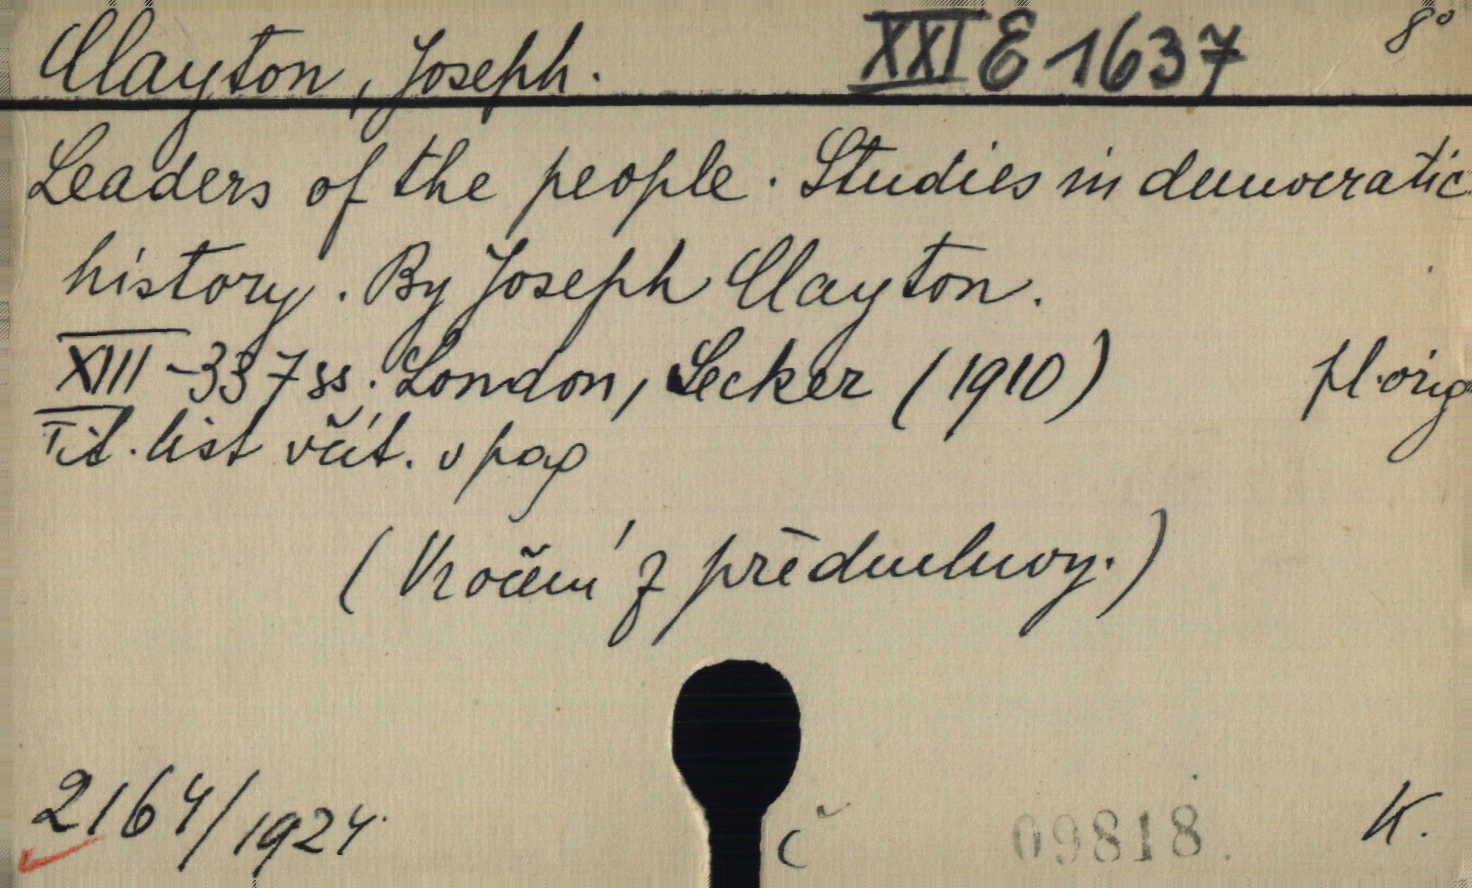 Clayton, Joseph. XXI E 1637 8°
Leaders of the people. Studies in democratic
history. By Joseph Clayton.
XIII-337 ss. London, Secker (1910) pl. orig
Tit. list včít. v pag
(Vročení z předmluvy.)
2164/1924
č 09818. K.